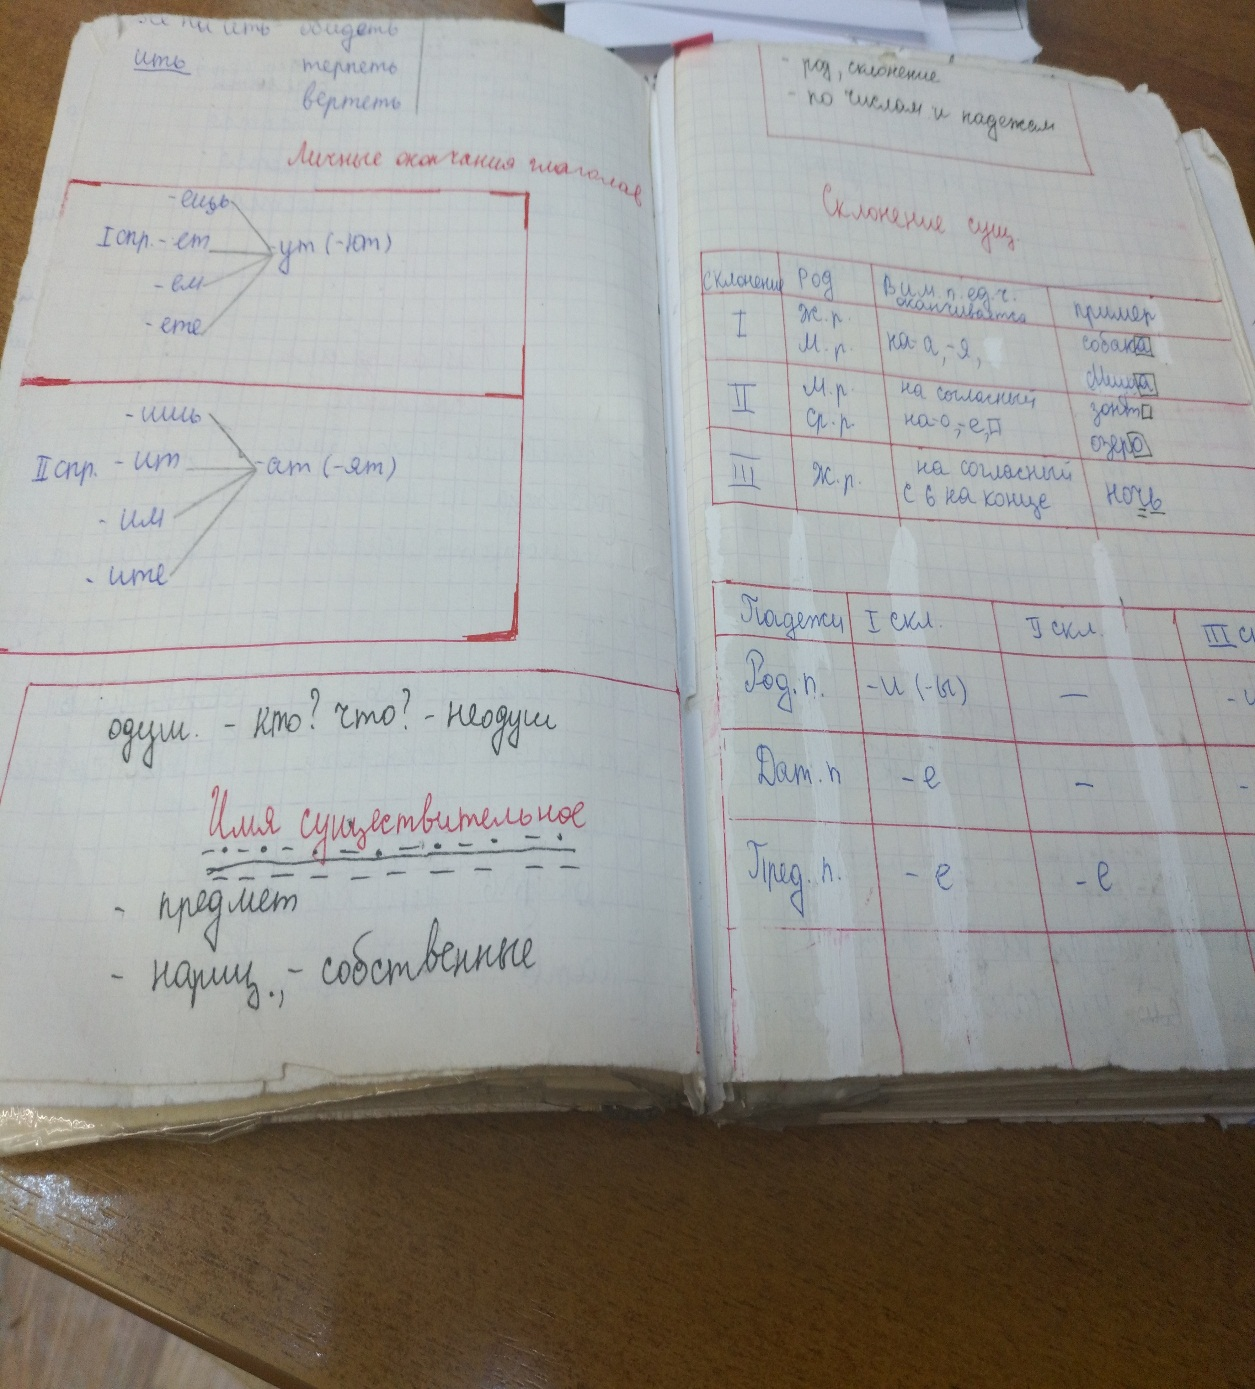 обидеть
ить терпеть
вертеть
Личные окончания глаголов
-ешь
I спр. - ет -ут (-ют)
- ем
- ете
- ишь
II спр. - ит -ат (-ят)
- им
- ите
одуш. - кто? что? - неодуш
Имя существительное
- предмет
- нариц., - собственные
- род, склонение
- по числам и падежам
Склонение сущ.
Склонение Род В им. п. ед. ч. оканчивается пример
I Ж.р. М.р. на -а, -я, собака Миша
II М.р. Ср.р. на согласный на -о, -е, зонт озеро
III Ж.р. на согласный с ь на конце ночь
Падежи I скл. II скл. III
Род. п. -и (-ы) — -и
Дат. п - е — -
Пред. п. - е - е